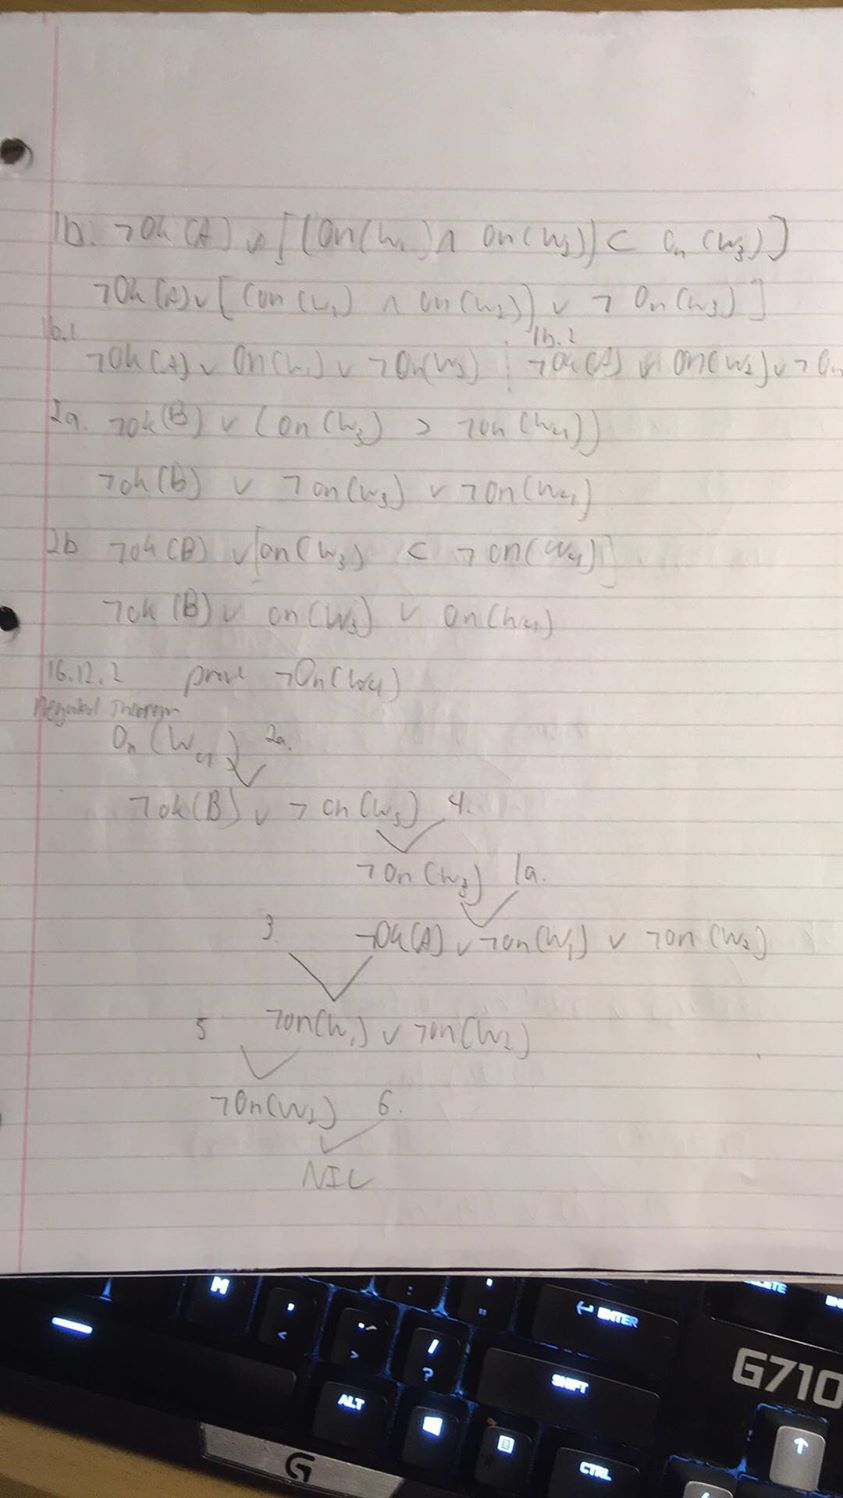 1b. ¬Ok(A) ∨ [(On(W₁) ∧ On(W₂)) ⊂ On(W₃)]
¬Ok(A) ∨ [(On(W₁) ∧ On(W₂)) ∨ ¬On(W₃)]
1b.1 1b.2
¬Ok(A) ∨ On(W₁) ∨ ¬On(W₃) ¬Ok(A) ∨ On(W₂) ∨ ¬On
2a. ¬ok(B) ∨ (on(W₃) ⊃ ¬on(W₄))
¬ok(B) ∨ ¬on(W₃) ∨ ¬on(W₄)
2b ¬ok(B) ∨ [on(W₃) ⊂ ¬on(W₄)]
¬ok(B) ∨ on(W₃) ∨ on(W₄)
16.12.2 prove ¬On(W₄)
Negated Theorem
On(W₄) 2a.
¬ok(B) ∨ ¬on(W₃) 4.
¬On(W₃) 1a.
3 ¬Ok(A) ∨ ¬on(W₁) ∨ ¬on(W₂)
5 ¬on(W₁) ∨ ¬on(W₂)
¬On(W₂) 6.
NIL
M
, <
. >
/ ?
ENTER
SHIFT
ALT
CTRL
G710
G